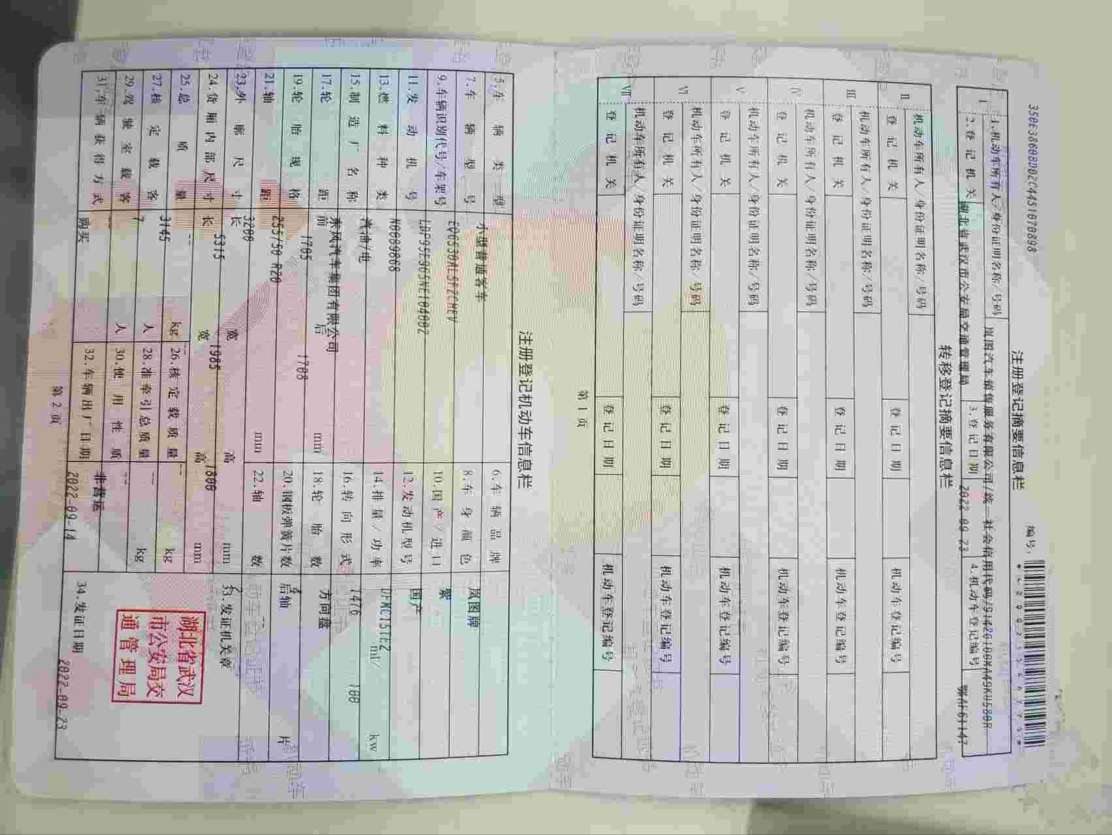 注册登记摘要信息栏
编号:
1.机动车所有人/身份证明名称/号码
岚图汽车销售服务有限公司/统一社会信用代码/
2.登记机关
湖北省武汉市公安局交通管理局
3.登记日期
2022-09-23
4.机动车登记编号
鄂AF61147
转移登记摘要信息栏
II
机动车所有人/身份证明名称/号码
登记机关
登记日期
机动车登记编号
III
机动车所有人/身份证明名称/号码
登记机关
登记日期
机动车登记编号
IV
机动车所有人/身份证明名称/号码
登记机关
登记日期
机动车登记编号
V
机动车所有人/身份证明名称/号码
登记机关
登记日期
机动车登记编号
VI
机动车所有人/身份证明名称/号码
登记机关
登记日期
机动车登记编号
VII
机动车所有人/身份证明名称/号码
登记机关
登记日期
机动车登记编号
第 1 页
注册登记机动车信息栏
5.车辆类型
小型普通客车
6.车辆品牌
岚图牌
7.车辆型号
8.车身颜色
紫
9.车辆识别代号/车架号
10.国产/进口
国产
11.发动机号
N0089868
12.发动机型号
DFMC15TE2
13.燃料种类
汽油/电
14.排量/功率
1476 ml/ 100 kw
15.制造厂名称
东风汽车集团有限公司
16.转向形式
方向盘
17.轮距
前 1705 后 1708 mm
18.轮胎数
4
19.轮胎规格
255/50 R20
20.钢板弹簧片数
后轴 -- 片
21.轴距
3200 mm
22.轴数
2
23.外廓尺寸
长 5315 宽 1985 高 1800 mm
33.发证机关章
24.货厢内部尺寸
长 -- 宽 -- 高 -- mm
湖北省武汉
市公安局交
通管理局
25.总质量
3145 kg
26.核定载质量
-- kg
27.核定载客
7 人
28.准牵引总质量
-- kg
29.驾驶室载客
-- 人
30.使用性质
非营运
34.发证日期
2022-09-23
31.车辆获得方式
购买
32.车辆出厂日期
2022-09-14
第 2 页